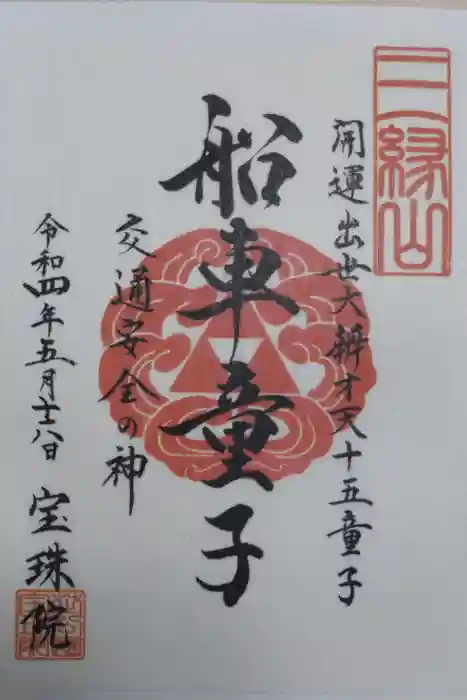 三縁山
開運出世大辨才天十五童子
船車童子
交通安全の神
令和四年五月廿八日
宝珠院